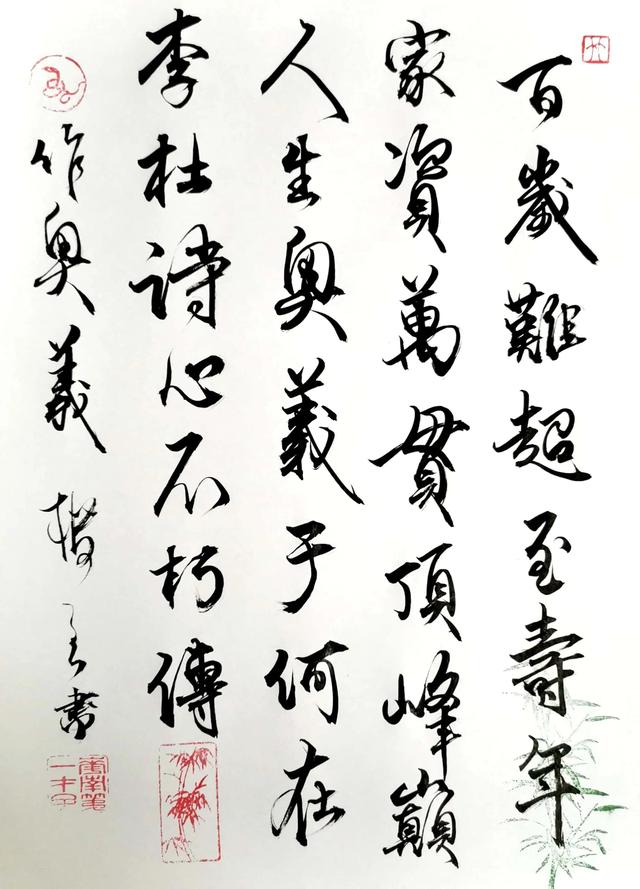 百歲難超至壽年
家資萬貫頂峰巔
人生奧義于何在
李杜詩心不朽傳
作奧義 書